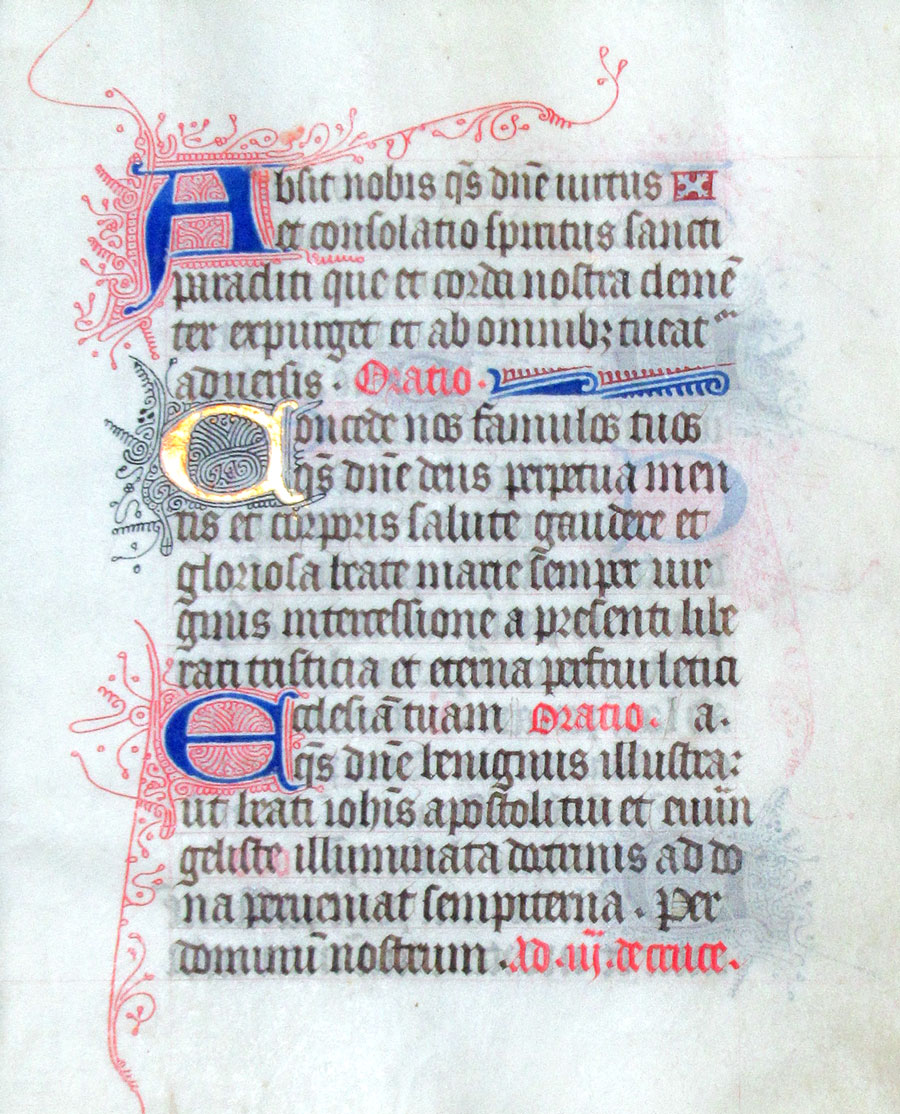 Absit nobis q̄s dn̄e uirtus
et consolatio spiritus sancti
paracliti que et corda nostra clemē
ter expurget et ab omnibꝫ tueat᷑
aduersis . Oratio .
Concede nos famulos tuos
q̄s dn̄e deus perpetua men
tis et corporis salute gaudere et
gloriosa beate marie semper uir
ginis intercessione a presenti libe
rari tristicia et eterna perfrui letici
Ecclesiā tuam Oratio . a .
q̄s dn̄e benignus illustra:
ut beati ioh̄is apostoli tui et euan
geliste illuminata doctrinis ad do
na perueniat sempiterna . Per
dominū nostrum . Ad .iij. de cruce .